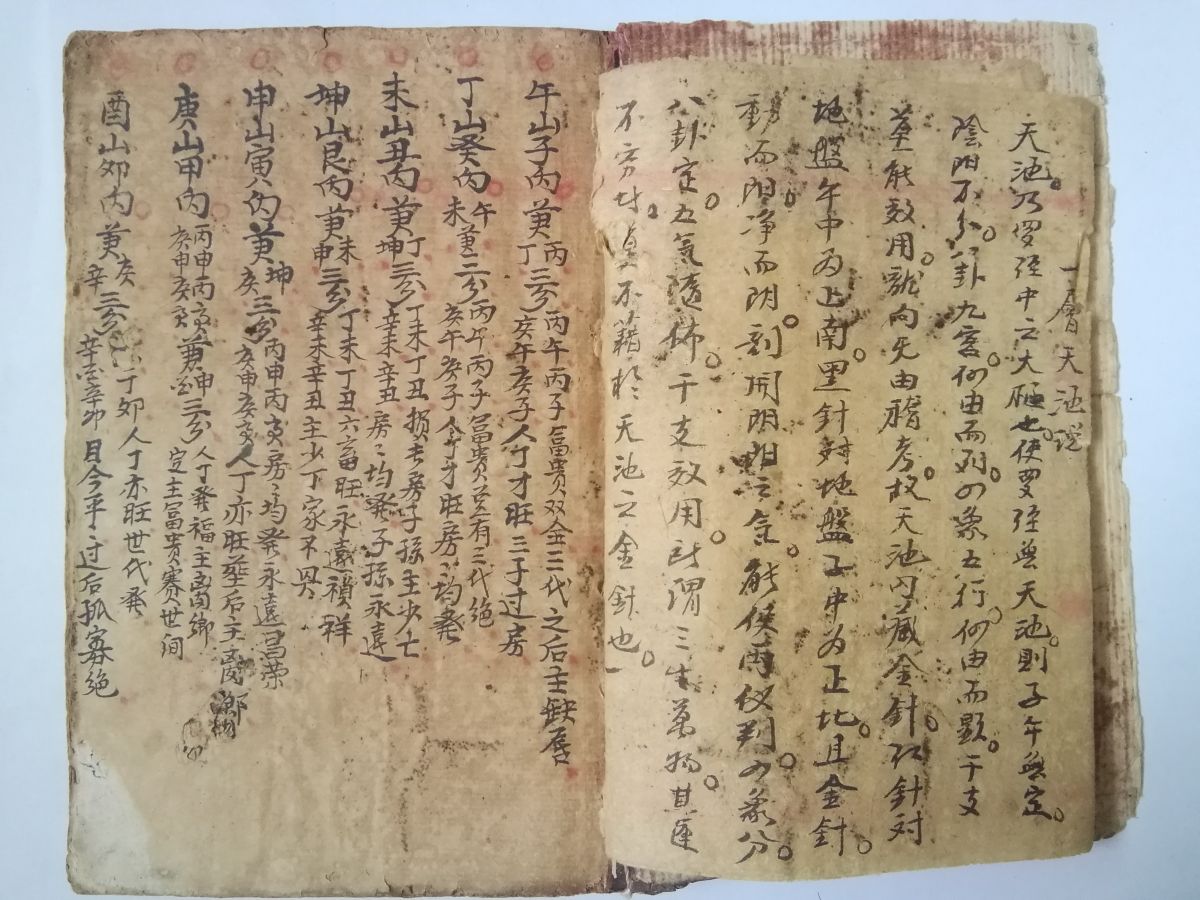 一層天池說
天池乃羅經中之大極也使羅經無天池則子午無定
陰陽不分八卦九宮何由而列四象五行何由而顯干支
莫能效用龍向无由稽考故天池內藏金針紅針对
地盤午中為上南黑針对地盤子中為正北且金針
動而阳净而阴剖開阴阳之金能使両仪判四象分
八卦定五氣隨佈干支效用所謂三生萬物其運
不窮
不籍於天池之金針也
午山子丙兼丙丁三分丙午丙子富貴双全三代之后主缺唇
亥午亥子人丁才旺三子过房
丁山癸丙兼午未三分丙午丙子富貴豈有三代絕
亥午亥子人丁才旺房々均發
未山丑丙兼丁坤三分丁未丁丑损長房子孫主少亡
辛未辛丑房々均發子孫永遠
坤山艮丙兼未申三分丁未丁丑六畜旺永遠禎祥
辛未辛丑主少丁家不興
申山寅丙兼坤亥三分丙申丙寅房々均發永遠昌荣
亥申亥寅人丁亦旺塟后主离鄉
庚山甲丙丙申丙寅兼申三分人丁發福主离鄉
亥申亥寅定主富貴赛世间
酉山卯丙兼亥辛三分丁卯人丁亦旺世代發
辛酉辛卯目今平过后孤寡絕